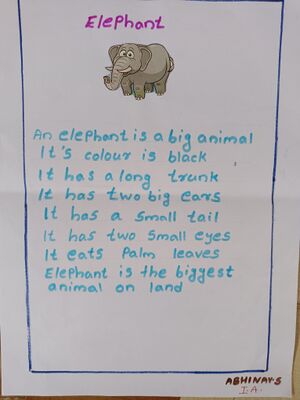 Elephant
An elephant is a big animal
It's colour is black
It has a long trunk
It has two big ears
It has a small tail
It has two small eyes
It eats Palm leaves
Elephant is the biggest
animal on land
ABHINAV.S
I.A.